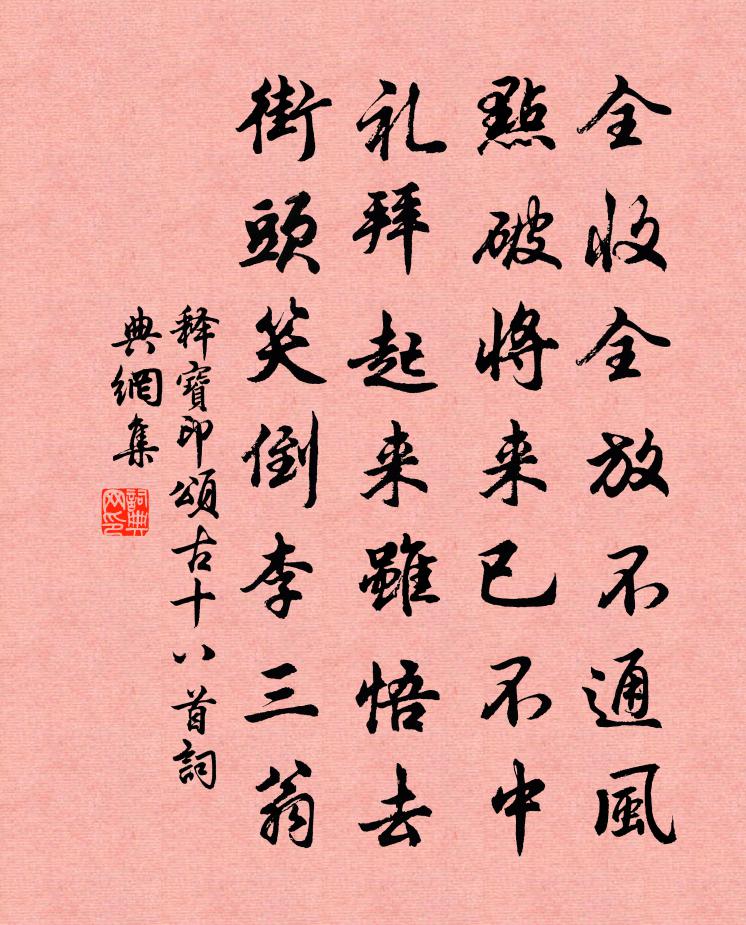 全收全放不通風
點破將来已不中
礼拜起来雖悟去
街頭笑倒李三翁
释寶印頌古十八首詞
典網集
詞典
网印